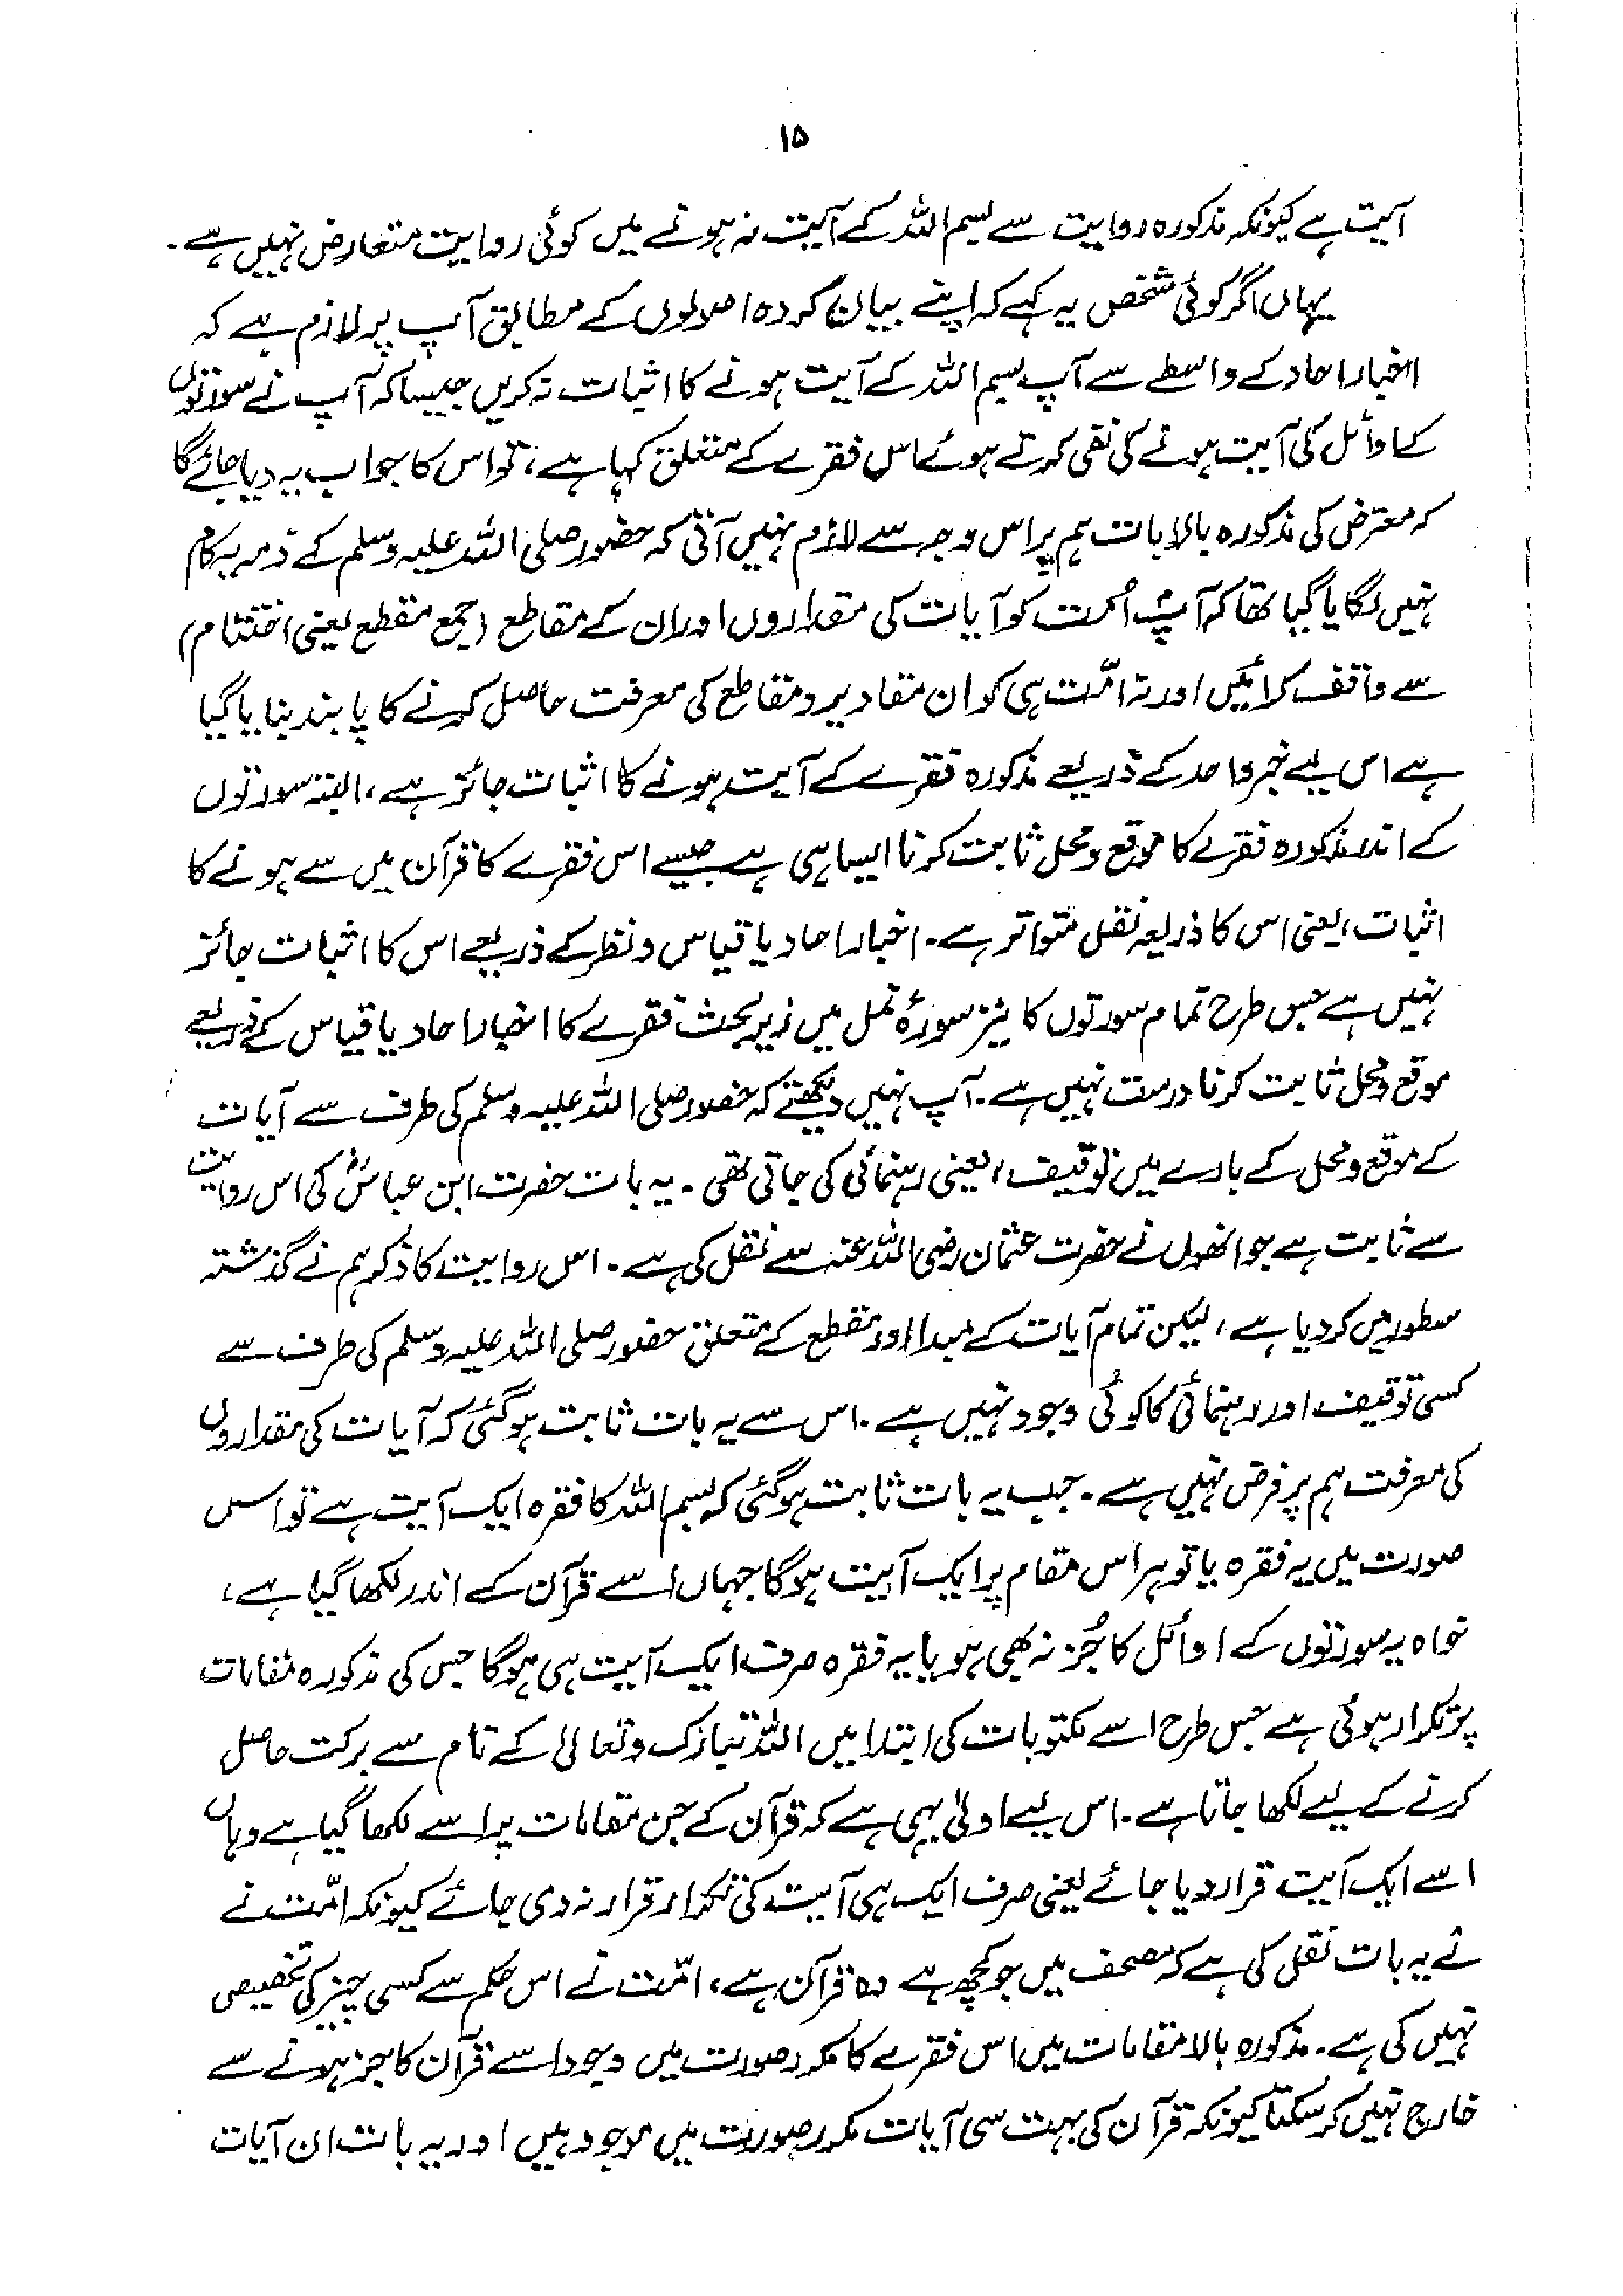 ۱۵
آیت ہے کیونکہ مذکورہ روایت سے بسم اللہ کے آیت نہ ہونے میں کوئی روایت متعارض نہیں ہے۔
یہاں اگر کوئی شخص یہ کہے کہ اپنے بیان کردہ اصولوں کے مطابق آپ پر لازم ہے کہ
اخبار احاد کے واسطے سے آپ بسم اللہ کے آیت ہونے کا اثبات نہ کریں جیسا کہ آپ نے سورتوں
کے اوائل کی آیت ہونے کی نفی کرتے ہوئے اس فقرے کے متعلق کہا ہے، تو اس کا جواب یہ دیا جائے گا
کہ معترض کی مذکورہ بالا بات ہم پر اس وجہ سے لازم نہیں آتی کہ حضور صلی اللہ علیہ وسلم کے ذمہ یہ کام
نہیں لگایا گیا تھا کہ آپؐ اُمت کو آیات کی مقداروں اور ان کے مقاطع (جمع مقطع یعنی اختتام)
سے واقف کرائیں اور نہ امّت ہی کو ان مقادیر و مقاطع کی معرفت حاصل کرنے کا پابند بنایا گیا
ہے اس لیے خبر واحد کے ذریعے مذکورہ فقرے کے آیت ہونے کا اثبات جائز ہے، البتہ سورتوں
کے اندر مذکورہ فقرے کا موقع و محل ثابت کرنا ایسا ہی ہے جیسے اس فقرے کا قرآن میں سے ہونے کا
اثبات، یعنی اس کا ذریعہ نقل متواتر ہے۔ اخبار احاد یا قیاس و نظر کے ذریعے اس کا اثبات جائز
نہیں ہے جس طرح تمام سورتوں کا نیز سورۂ نمل میں زیر بحث فقرے کا اخبار احاد یا قیاس کے ذریعے
موقع و محل ثابت کرنا درست نہیں ہے۔ آپ نہیں دیکھتے کہ حضور صلی اللہ علیہ وسلم کی طرف سے آیات
کے موقع و محل کے بارے میں توقیف، یعنی رہنمائی کی جاتی تھی۔ یہ بات حضرت ابن عباسؓ کی اس روایت
سے ثابت ہے جو انھوں نے حضرت عثمان رضی اللہ عنہ سے نقل کی ہے۔ اس روایت کا ذکر ہم نے گذشتہ
سطور میں کر دیا ہے، لیکن تمام آیات کے مبدا اور مقطع کے متعلق حضور صلی اللہ علیہ وسلم کی طرف سے
کسی توقیف اور رہنمائی کا کوئی وجود نہیں ہے۔ اس سے یہ بات ثابت ہو گئی کہ آیات کی مقداروں
کی معرفت ہم پر فرض نہیں ہے۔ جب یہ بات ثابت ہو گئی کہ بسم اللہ کا فقرہ ایک آیت ہے تو اس
صورت میں یہ فقرہ یا تو ہر اس مقام پر ایک آیت ہو گا جہاں اسے قرآن کے اندر لکھا گیا ہے،
خواہ یہ سورتوں کے اوائل کا جُز نہ بھی ہو یا یہ فقرہ صرف ایک آیت ہی ہو گا جس کی مذکورہ مقامات
پر تکرار ہوئی ہے جس طرح اسے مکتوبات کی ابتدا میں اللہ تبارک و تعالیٰ کے نام سے برکت حاصل
کرنے کے لیے لکھا جاتا ہے۔ اس لیے اولیٰ یہی ہے کہ قرآن کے جن مقامات پر اسے لکھا گیا ہے وہاں
اسے ایک آیت قرار دیا جائے یعنی صرف ایک ہی آیت کی تکرار قرار نہ دی جائے کیونکہ امّت نے
نے یہ بات نقل کی ہے کہ مصحف میں جو کچھ ہے وہ قرآن ہے، امّت نے اس حکم سے کسی چیز کی تخصیص
نہیں کی ہے۔ مذکورہ بالا مقامات میں اس فقرے کا مکرر صورت میں وجود اسے قرآن کا جز ہونے سے
خارج نہیں کر سکتا کیونکہ قرآن کی بہت سی آیات مکرر صورت میں موجود ہیں اور یہ بات ان آیات